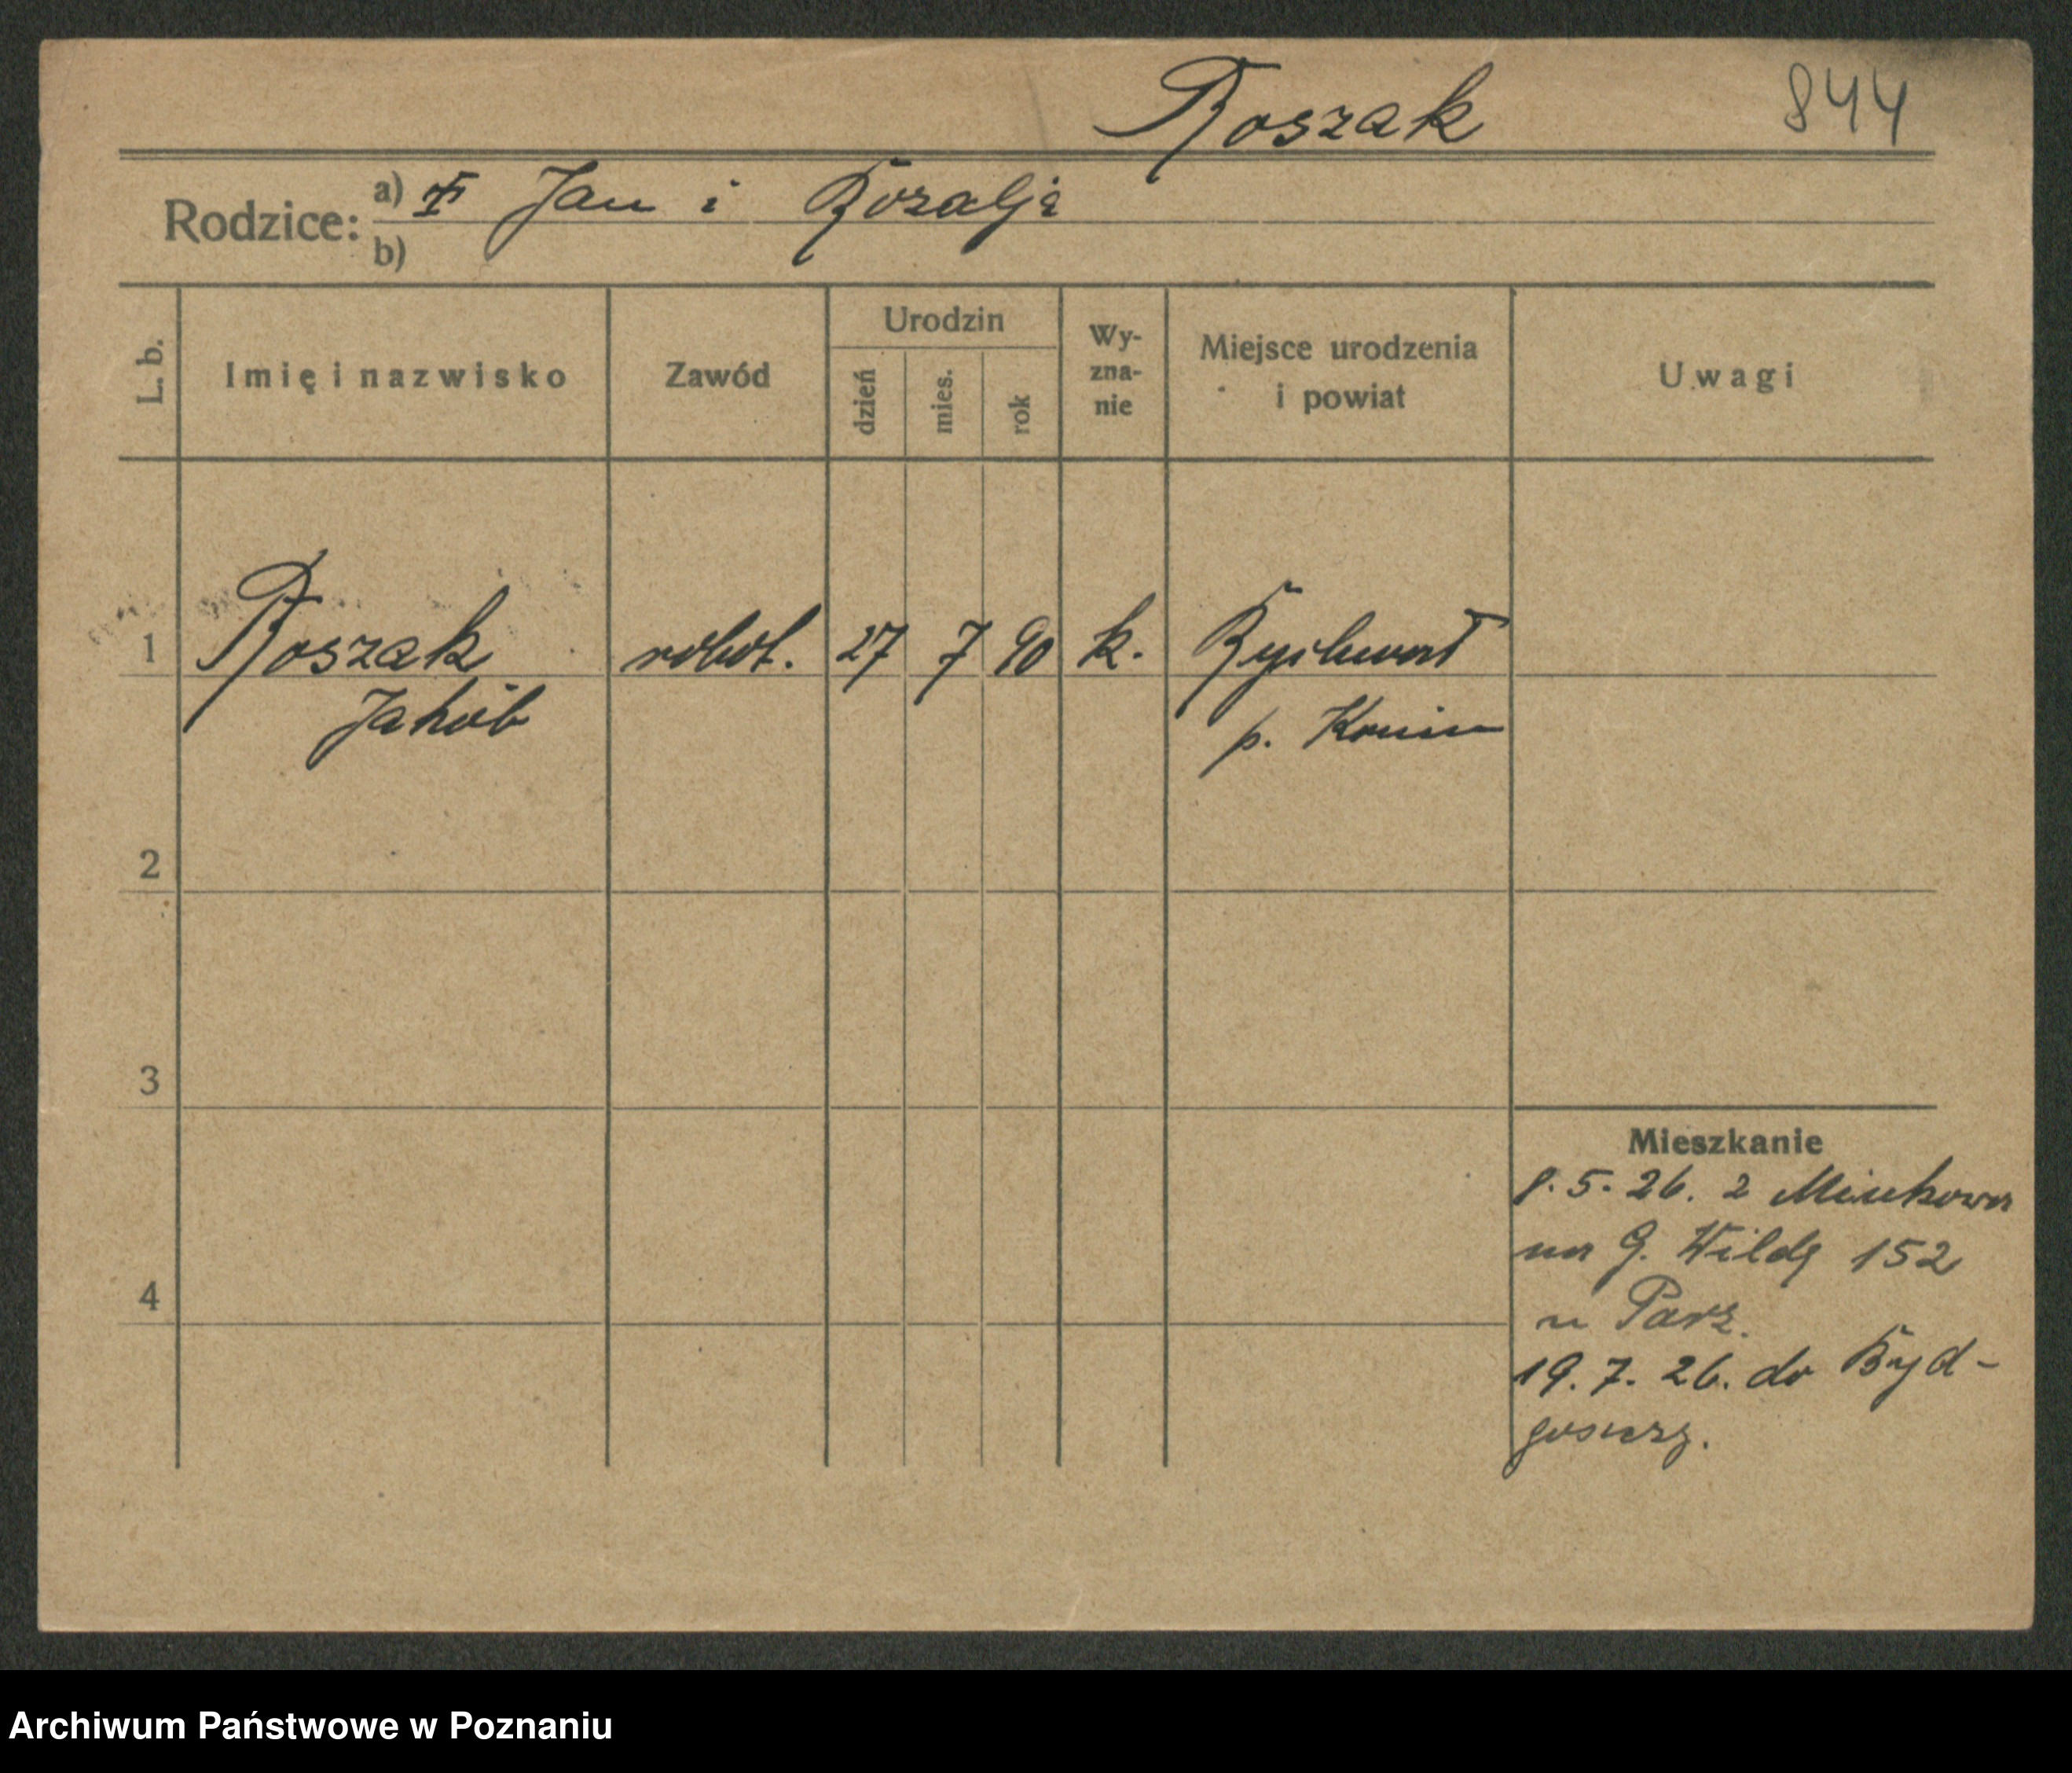 Roszak
844
Rodzice:
a) Jan i Rozalja
b)
L. b.
Imię i nazwisko
Zawód
Urodzin
dzień
mies.
rok
Wy-
zna-
nie
Miejsce urodzenia
i powiat
Uwagi
1
Roszak
robot.
27
7
90
k.
Rychwał
Jakób
p. Konin
2
3
4
Mieszkanie
8. 5. 26. z
na G. Wildę 152
19. 7. 26. do Byd-
goszczy.
Archiwum Państwowe w Poznaniu